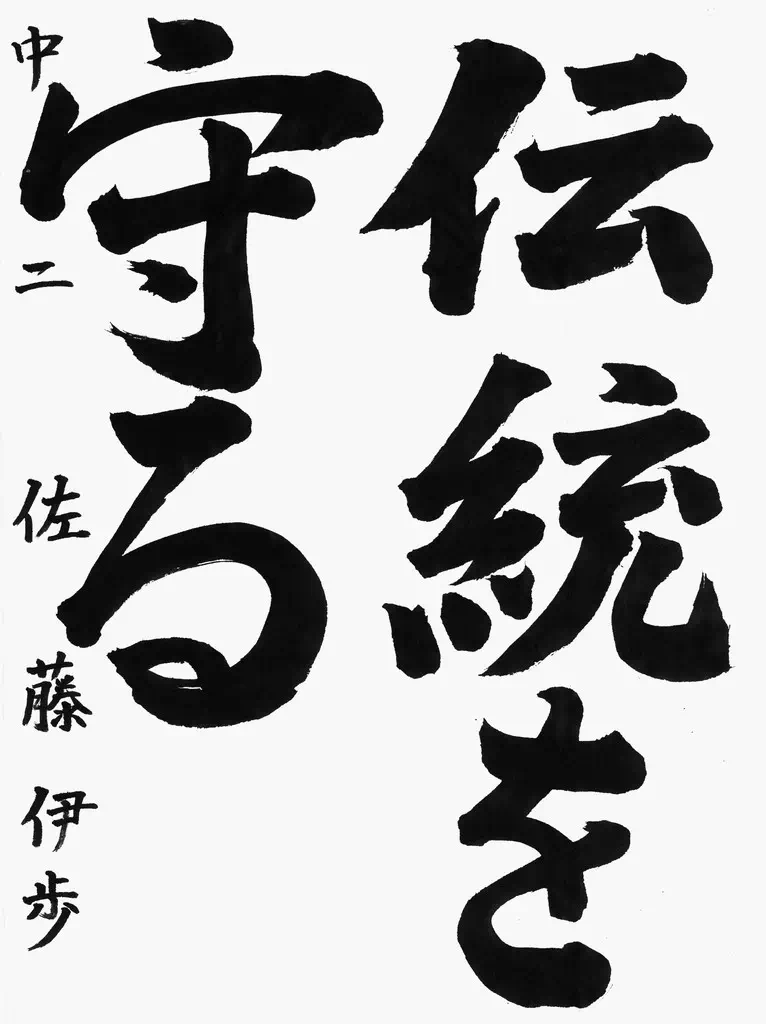 伝統を
守る
中二 佐藤伊歩